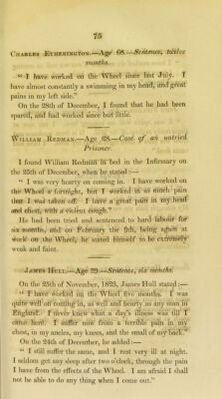 75
CHARLES ETHERINGTON.—Age 68.—Sentence, twelve
months.
“ I have worked on the Wheel since last July. I
have almost constantly a swimming in my head, and great
pains in my left side.”
On the 28th of December, I found that he had been
spared, and had worked since but little.
WILLIAM REDMAN.—Age 68.—Case of an untried
Prisoner.
I found William Redman in bed in the Infirmary on
the 25th of December, when he stated :—
“ I was very hearty on coming in. I have worked on
the Wheel a fortnight, but I worked in so much pain
that I was taken off. I have a great pain in my head
and chest, with a violent cough.”
He had been tried and sentenced to hard labour for
six months, and on February the 9th, being again at
work on the Wheel, he stated himself to be extremely
weak and faint.
JAMES HULL.—Age 29.—Sentence, six months.
On the 25th of November, 1823, James Hull stated :—
“ I have worked on the Wheel five months. I was
quite well on coming in, as well and hearty as any man in
England. I never knew what a day's illness was till I
came here. I suffer now from a terrible pain in my
chest, in my ancles, my knees, and the small of my back.”
On the 24th of December, he added :—
“ I still suffer the same, and I rest very ill at night.
I seldom get any sleep after two o'clock, through the pain
I have from the effects of the Wheel. I am afraid I shall
not be able to do any thing when I come out.”